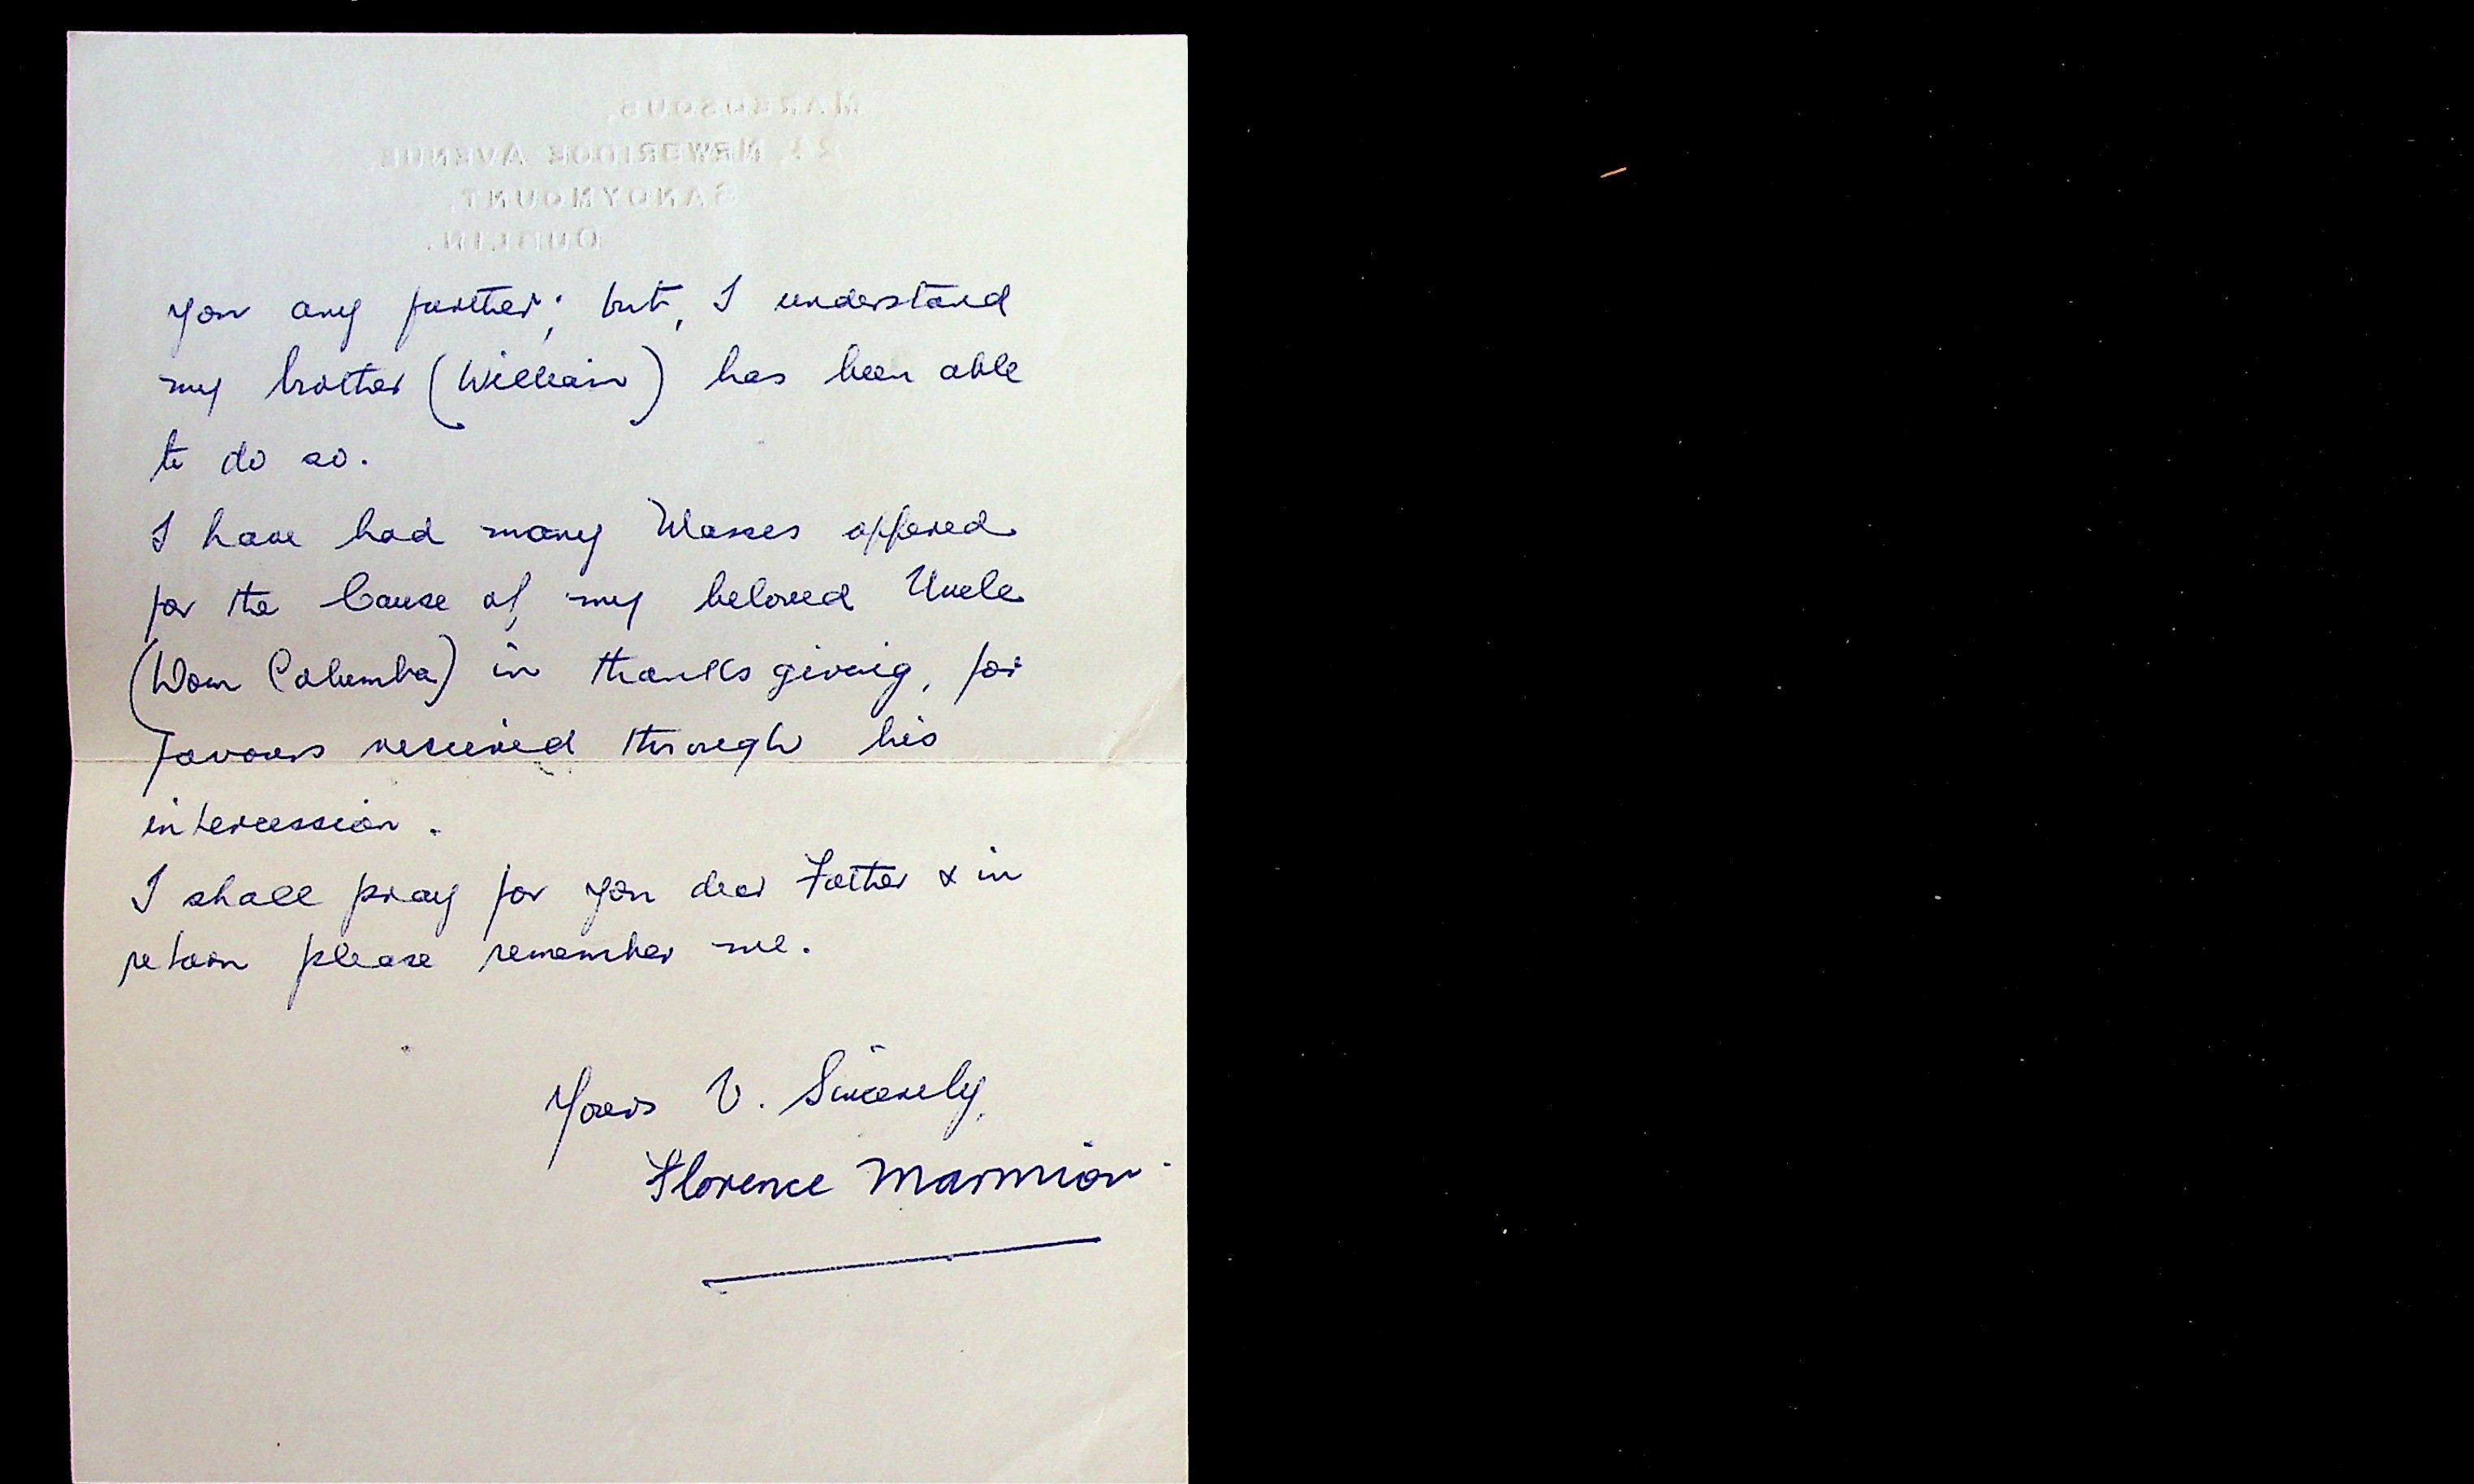 NEWBRIDGE AVENUE,
SANDYMOUNT,
DUBLIN.
you any further; but, I understand
my brother (William) has been able
to do so.
I have had many Masses offered
for the Cause of my beloved Uncle
(Dom Columba) in thanksgiving, for
favours received through his
intercession.
I shall pray for you dear Father & in
return please remember me.
Yours V. Sincerely,
Florence Marmion.